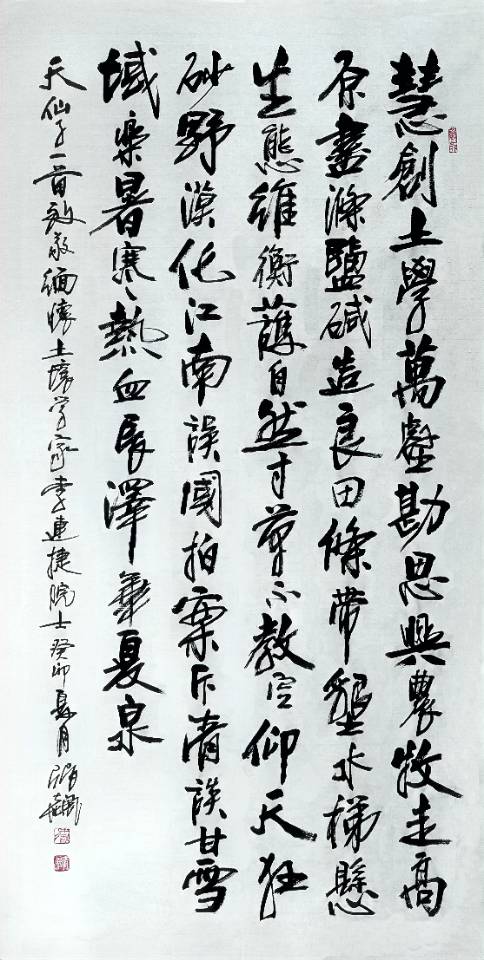 慧創土學萬壑勘思興農牧走高
原盡滌鹽碱造良田條带墾水梯懸
生態維衡護自然寸草不教空仰天狂
砂野漠化江南誤國拍案斥清談甘雪
域樂暑寒寒熱血長澤華夏泉
天仙子一首致敬緬懷土壤学家李連捷院士癸卯夏月